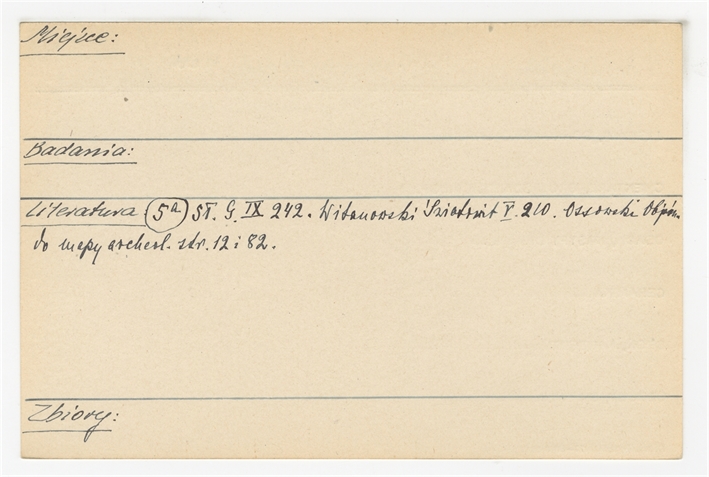 Miejsce:
Badania:
Literatura (5a) Sł. G. IX 242. Witanowski Światowit V. 210. Ossowski Objaśn.
do mapy archeol. str. 12 i 82.
Zbiory: